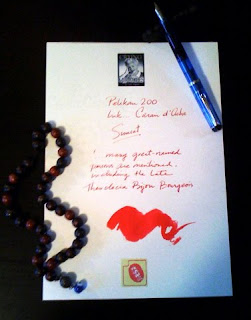 Pelikan 200
Ink Caran d'Ache
Sunset
many great-named
pawns are mentioned.
including the late
Theodosia Bijou Bourgeon